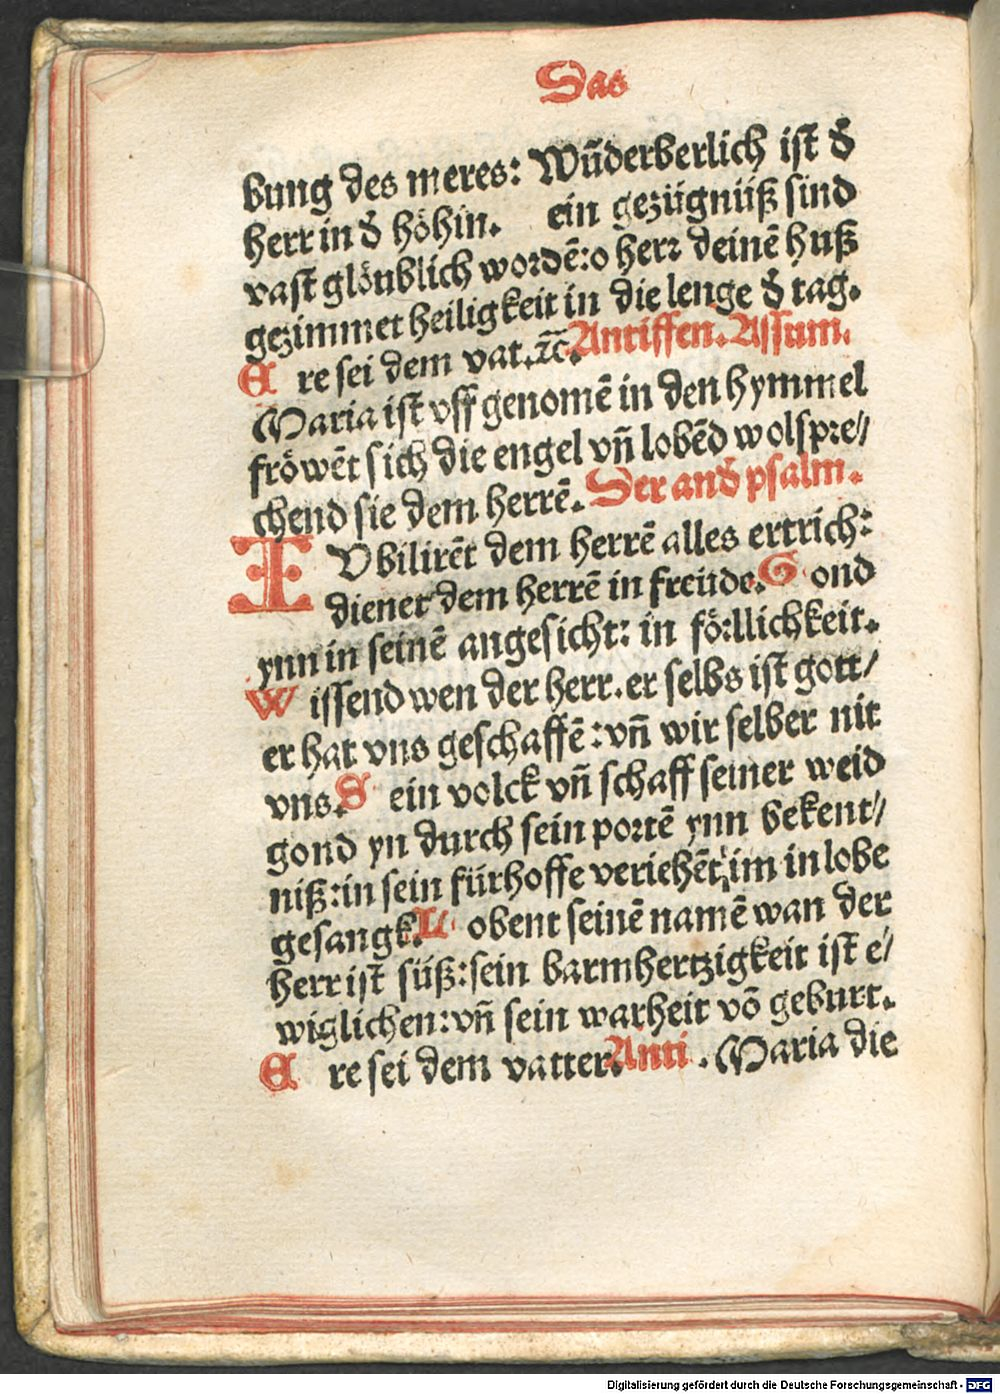 Das
bung des meres: Wūderberlich ist d̄
herr in d̄ höhin. ein gezügnüß sind
vast glöublich wordē:o herr deinē huß
gezimmet heiligkeit in die lenge d̄ tag.
Ere sei dem vat.ꝛc̄. Antiffen. Assum.
Maria ist vff genomē in den hymmel
fröwēt sich die engel vn̄ lobēd wolspre⸗
chend sie dem herrē. Der and̄ psalm.
IVbilirēt dem herrē alles ertrich:
dienet dem herrē in freüde. Gond
ynn in seinē angesicht: in fröllichkeit.
Wissend wen der herr. er selbs ist gott/
er hat vns geschaffē: vn̄ wir selber nit
vns. Sein volck vn̄ schaff seiner weid
gond yn durch sein portē ynn bekent⸗
niß: in sein fürhoffe veriehēt im in lobe
gesangk. Lobent seinē namē wan der
herr ist süß: sein barmhertzigkeit ist e⸗
wiglichen: vn̄ sein warheit vō geburt.
Ere sei dem vatter. Anti. Maria die
Digitalisierung gefördert durch die Deutsche Forschungsgemeinschaft - DFG